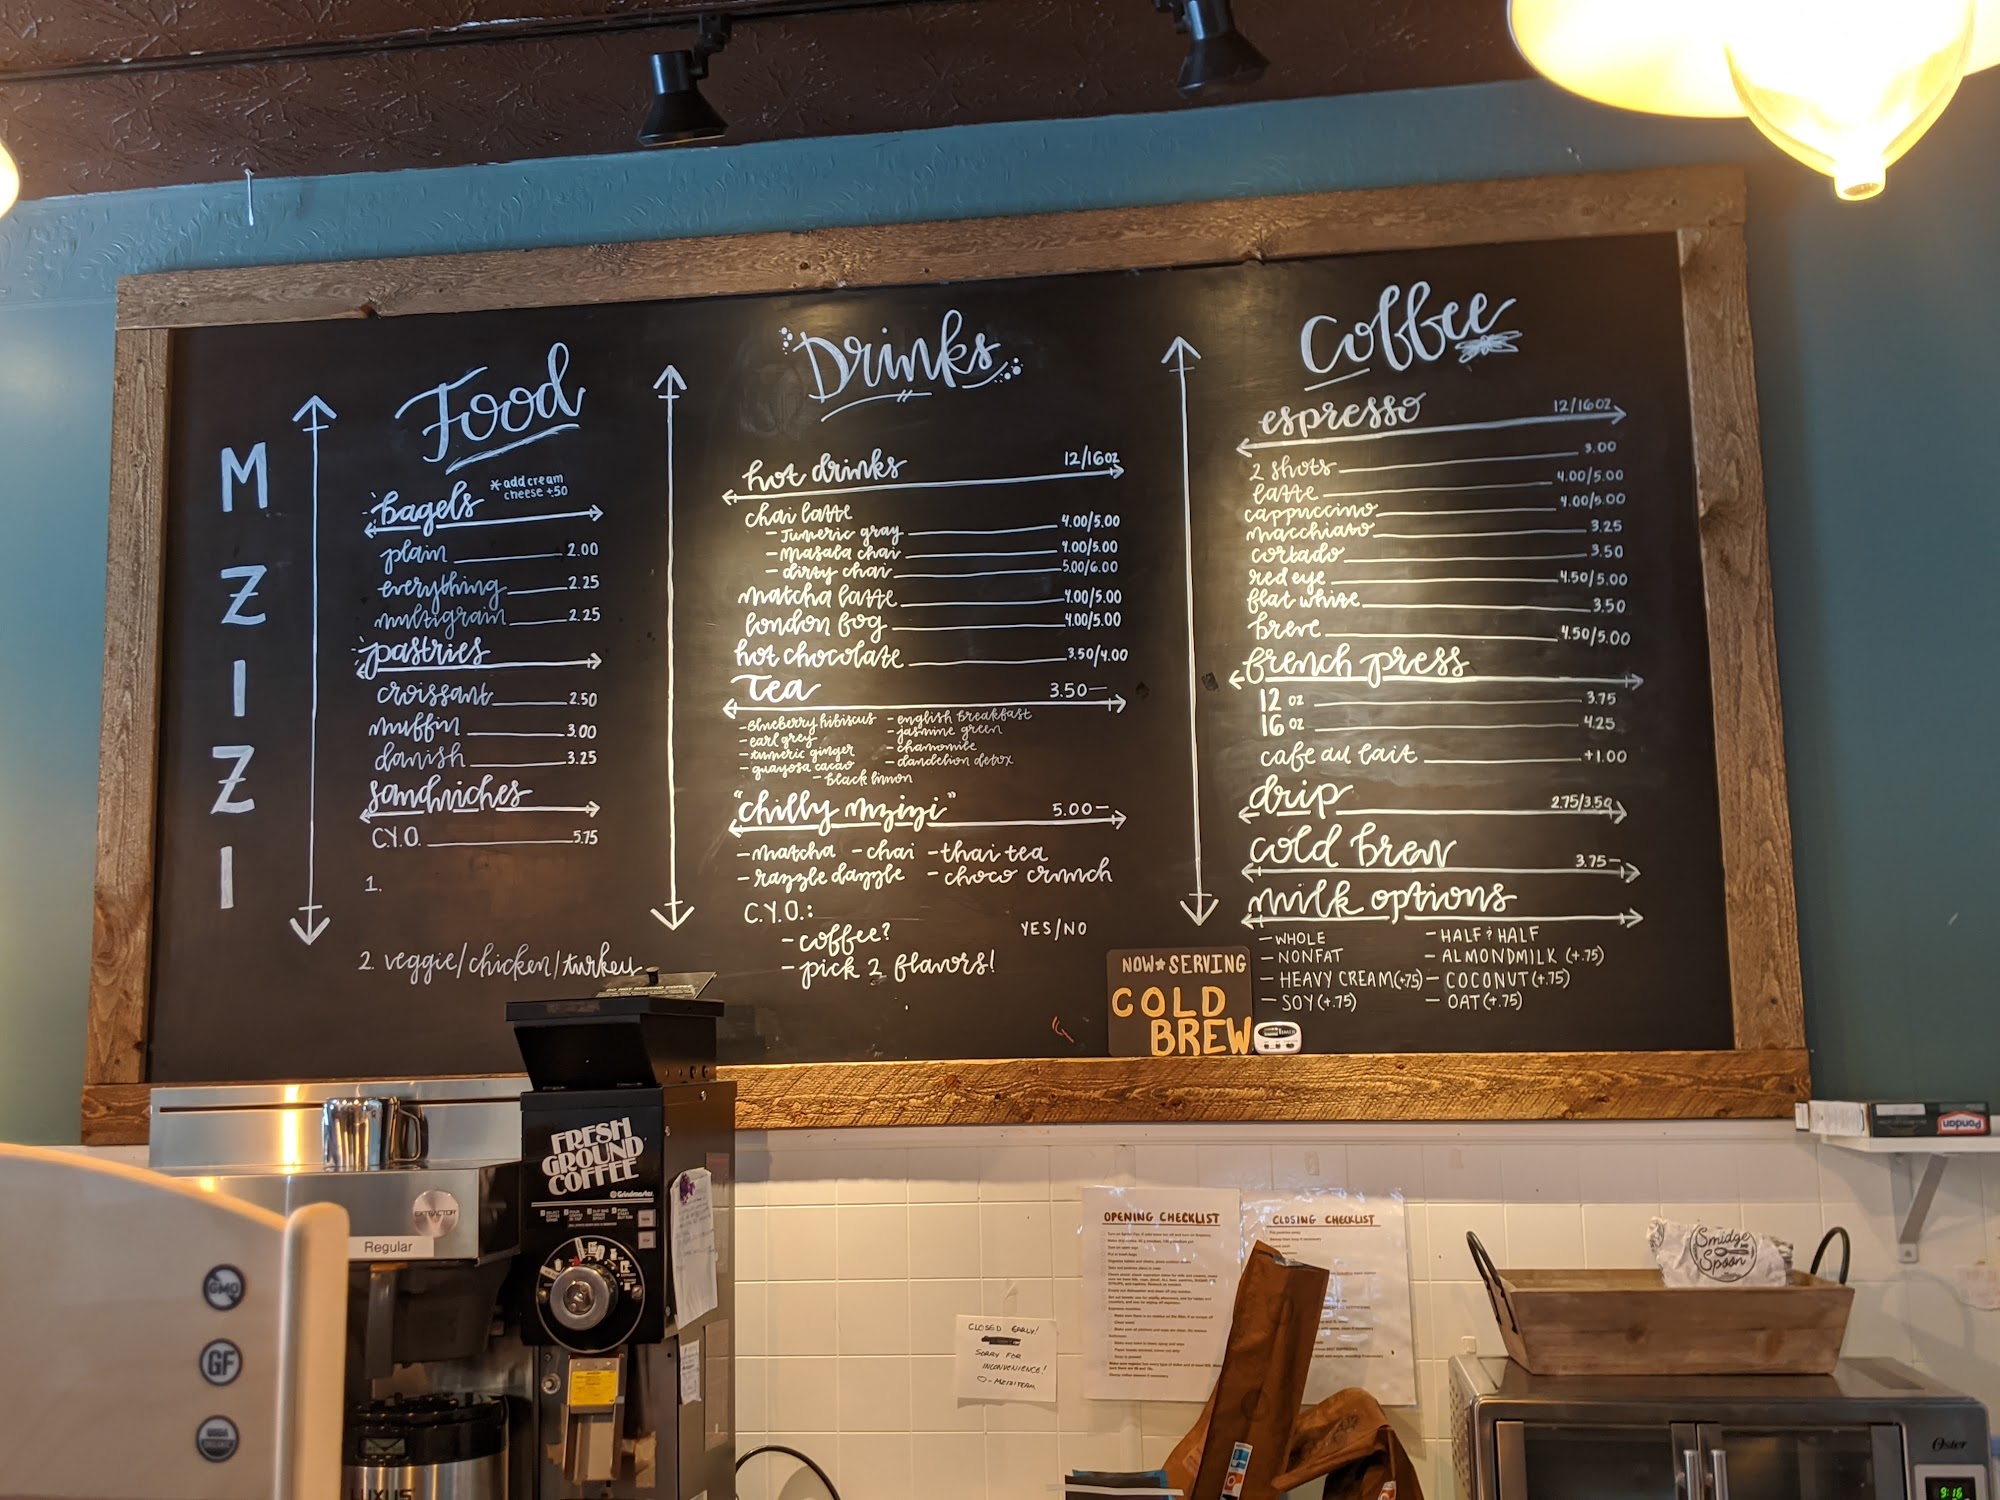 MZIZI
Food
bagels
*add cream
cheese +.50
plain 2.00
everything 2.25
multigrain 2.25
pastries
croissant 2.50
muffin 3.00
danish 3.25
sandwiches
C.Y.O. 5.75
1.
2. veggie/chicken/turkey
Drinks
hot drinks 12/16oz
chai latte
- Tumeric gray 4.00/5.00
- masala chai 4.00/5.00
- dirty chai 5.00/6.00
matcha latte 4.00/5.00
london fog 4.00/5.00
hot chocolate 3.50/4.00
Tea 3.50-
- blueberry hibiscus - english breakfast
- earl grey - jasmine green
- tumeric ginger - chamomile
- guayosa cacao - dandelion detox
- black limon
"chilly mzizi" 5.00-
- matcha - chai - thai tea
- razzle dazzle - choco crunch
C.Y.O.:
- coffee? YES/NO
- pick 2 flavors!
Coffee
espresso 12/16oz
2 shots 3.00
latte 4.00/5.00
cappuccino 4.00/5.00
macchiato 3.25
cortado 3.50
red eye 4.50/5.00
flat white 3.50
breve 4.50/5.00
french press
12 oz 3.75
16 oz 4.25
cafe au lait +1.00
drip 2.75/3.50
cold brew 3.75-
milk options
- WHOLE - HALF & HALF
- NONFAT - ALMONDMILK (+.75)
- HEAVY CREAM (+.75) - COCONUT (+.75)
- SOY (+.75) - OAT (+.75)
NOW★SERVING
COLD
BREW
FRESH
GROUND
COFFEE
Grindmaster
EXTRACTOR
Regular
GMO
GF
LUXUS
CLOSED EARLY!
SORRY FOR
INCONVENIENCE!
OPENING CHECKLIST
CLOSING CHECKLIST
Smidge
AND
Spoon
Pandan
Oster
9:16